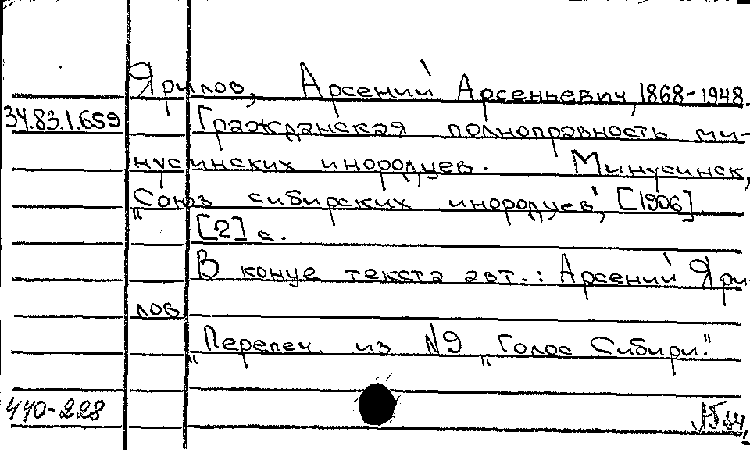 Ярилов, Арсений Арсеньевич, 1868-1948.
34.83.1.659 Гражданская полноправность ми-
нусинских инородцев. Минусинск,
„Союз сибирских инородцев", [1906]
[2] с.
В конце текста авт.: Арсений Яри
лов
„Перепеч. из №9 „Голос Сибири."
440-228